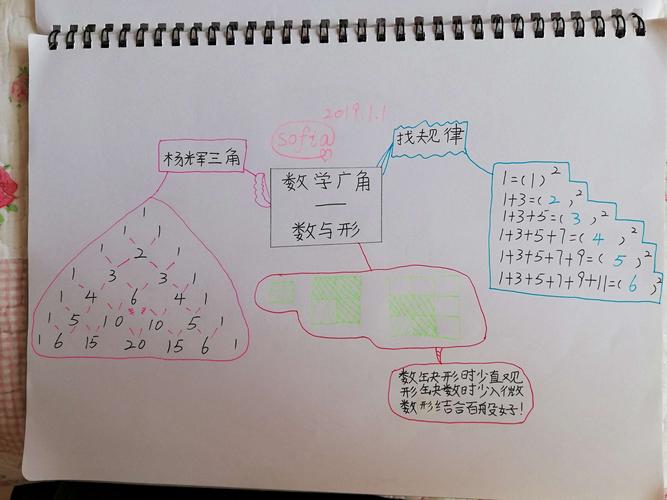 2019.1.1
sofia
杨辉三角
数学广角
—
数与形
找规律
1
1 1
1 2 1
1 3 3 1
1 4 6 4 1
1 5 10 10 5 1
1 6 15 20 15 6 1
1=(1)²
1+3=(2)²
1+3+5=(3)²
1+3+5+7=(4)²
1+3+5+7+9=(5)²
1+3+5+7+9+11=(6)²
数缺形时少直观
形缺数时少入微
数形结合百般好!